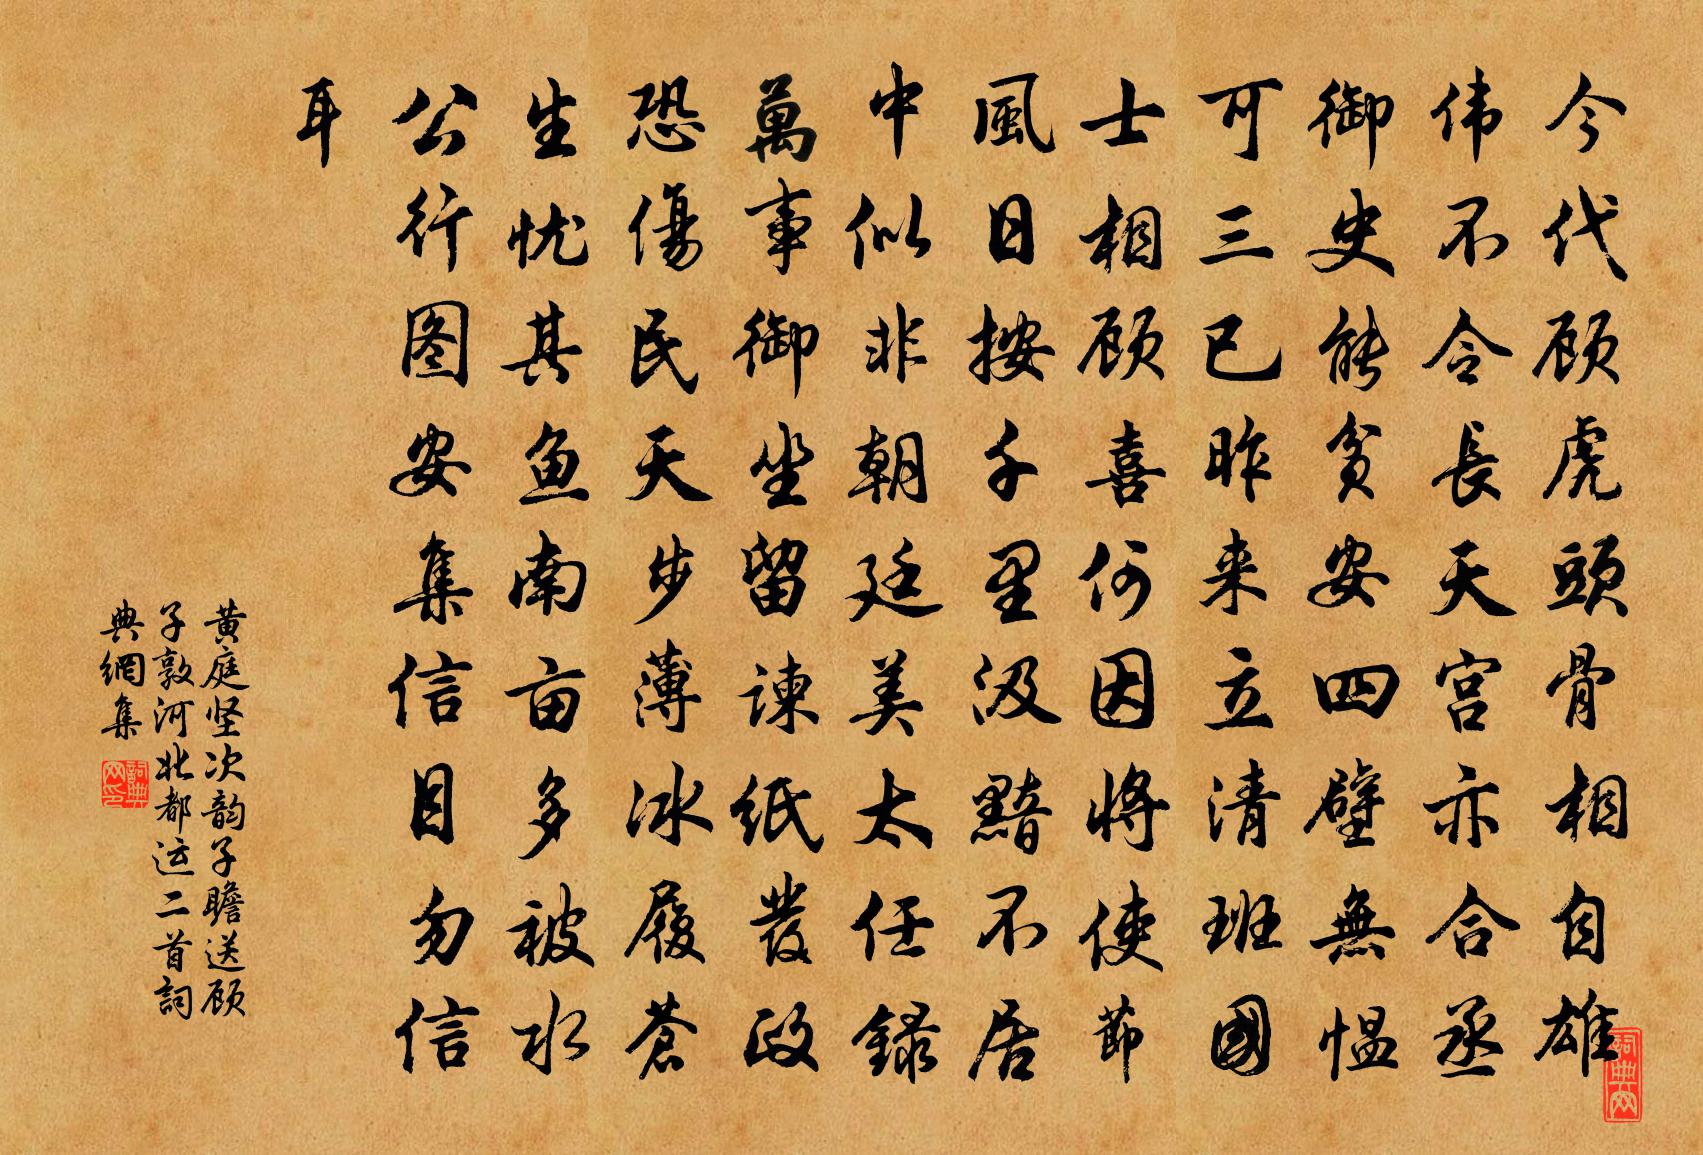 今代顾虎頭骨相自雄
伟不令長天宫亦合丞
御史能貧安四壁無愠
可三已昨来立清班國
士相顾喜何因将使節
風日按千里汲黯不居
中似非朝廷美太任録
萬事御坐留諫紙發政
恐傷民天步薄冰履蒼
生忧其鱼南亩多被水
公行图安集信目勿信
耳
黄庭坚次韵子瞻送顾
子敦河北都运二首詞
典網集
詞典网
詞典网印